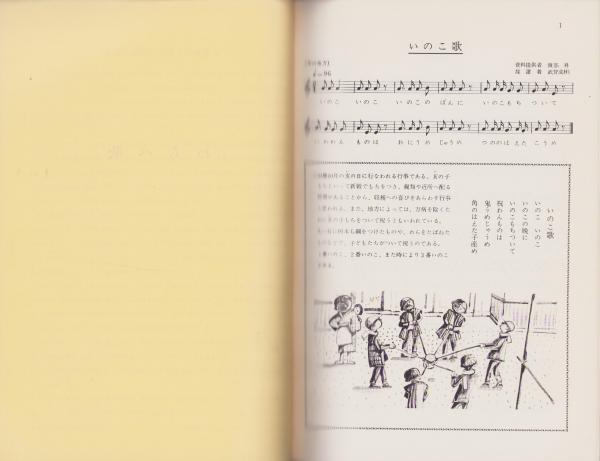 1
いのこ歌
♩=96
資料提供者
採譜者
いのこ いのこ いのこの ばんに いのこもち ついて
いわわん ものは おにうめ じゃうめ つののはえた こうめ
いのこ歌
いのこ いのこ
いのこの晩に
いのこもちついて
祝わんものは
鬼うめじゃうめ
角のはえた子産め
の亥の日に行なわれる行事である。亥の子
もちといって新穀でもちをつき、親類や近所へ配る
収穫への喜びをあらわす行事
われる。また、地方によっては、万病を除くた
子もちをついて祝うともいわれている。
縄をつけたものや、わらをたばねた
で、子どもたちがついて祝うのである。
1番いのこ、2番いのこ、また時により3番いのこ